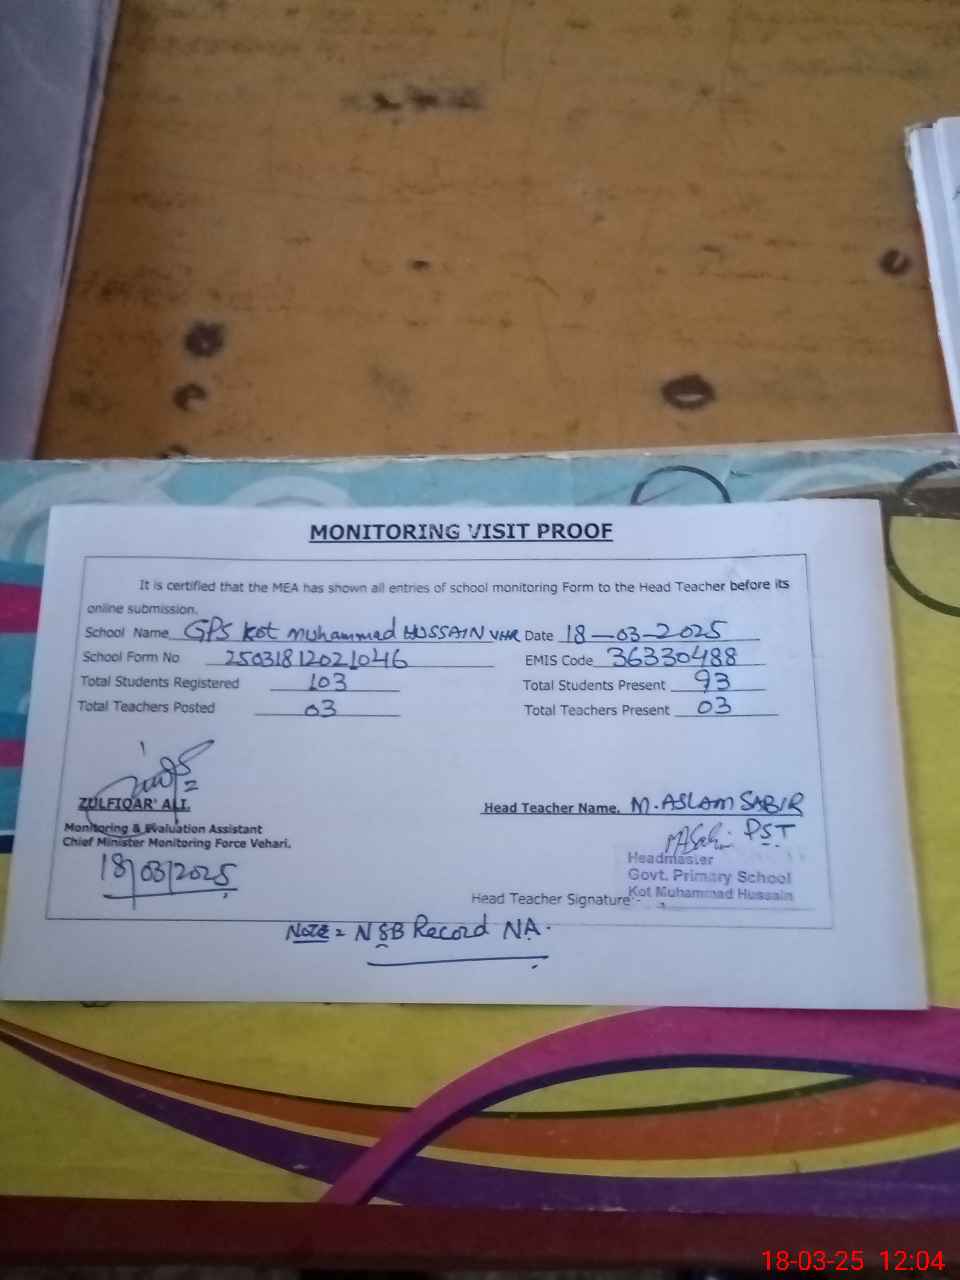 MONITORING VISIT PROOF
It is certified that the MEA has shown all entries of school monitoring Form to the Head Teacher before its
online submission.
School Name GPS Kot Muhammad HUSSAIN VHR Date 18-03-2025
School Form No 25031812021046 EMIS Code 36330488
Total Students Registered 103 Total Students Present 93
Total Teachers Posted 03 Total Teachers Present 03
ZULFIQAR ALI.
Monitoring & Evaluation Assistant
Chief Minister Monitoring Force Vehari.
18/03/2025
Head Teacher Name. M. ASLAM SABIR
PST
Headmaster
Govt. Primary School
Kot Muhammad Hussain
Head Teacher Signature:-
Note = NSB Record NA.
18-03-25 12:04